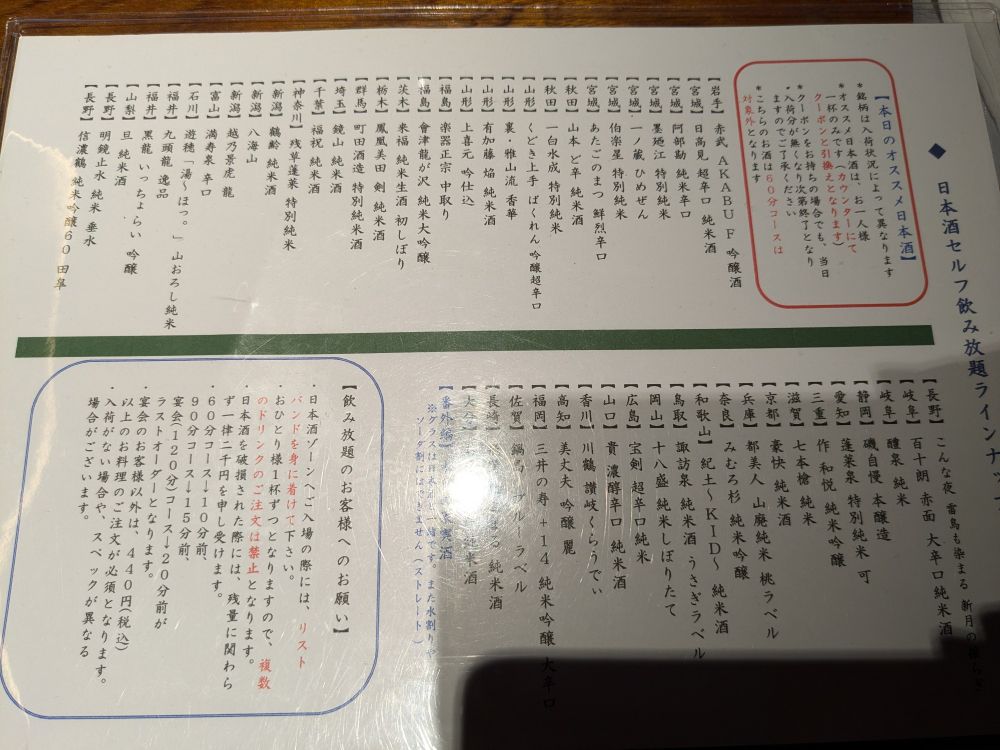 ◆ 日本酒セルフ飲み放題ラインナ
【本日のオススメ日本酒】
*銘柄は入荷状況によって異なります
*オススメ日本酒は、お一人様
一杯のみです(カウンターにて
クーポンと引換えとなります)
*クーポンをお持ちの場合でも、当日
入荷分が無くなり次第終了となり
ますのでご了承ください
*こちらのお酒は60分コースは
対象外となります
【岩手】 赤武 AKABU F 吟醸酒
【宮城】 日高見 超辛口 純米酒
【宮城】 阿部勘 純米辛口
【宮城】 墨廼江 特別純米
【宮城】 一ノ蔵 ひめぜん
【宮城】 伯楽星 特別純米
【宮城】 あたごのまつ 鮮烈辛口
【秋田】 山本 ど辛 純米酒
【秋田】 一白水成 特別純米
【山形】 くどき上手 ばくれん 吟醸超辛口
【山形】 裏・雅山流 香華
【山形】 有加藤 焔 純米酒
【山形】 上喜元 吟仕込
【福島】 楽器正宗 中取り
【福島】 會津龍が沢 純米大吟醸
【茨木】 来福 純米生酒 初しぼり
【栃木】 鳳凰美田 剣 純米酒
【群馬】 町田酒造 特別純米酒
【埼玉】 鏡山 純米酒
【千葉】 福祝 純米酒
【神奈川】 残草蓬莱 特別純米
【新潟】 鶴齢 純米酒
【新潟】 八海山
【新潟】 越乃景虎 龍
【富山】 満寿泉 辛口
【石川】 遊穂「湯〜ほっ。」山おろし純米
【福井】 九頭龍 逸品
【福井】 黒龍 いっちょらい 吟醸
【山梨】 旦 純米酒
【長野】 明鏡止水 純米 垂水
【長野】 信濃鶴 純米吟醸60 田皐
【長野】 こんな夜 雷鳥も染まる 新月の揺らぎ
【岐阜】 百十朗 赤面 大辛口純米酒
【岐阜】 醴泉 純米
【静岡】 磯自慢 本醸造
【愛知】 蓬莱泉 特別純米 可
【三重】 作 和悦 純米吟醸
【滋賀】 七本槍 純米
【京都】 豪快 純米酒
【兵庫】 都美人 山廃純米 桃ラベル
【奈良】 みむろ杉 純米吟醸
【和歌山】 紀土〜KID〜 純米酒
【鳥取】 諏訪泉 純米酒 うさぎラベル
【岡山】 十八盛 純米しぼりたて
【広島】 宝剣 超辛口純米
【山口】 貴 濃醇辛口 純米酒
【香川】 川鶴 讃岐くらうでぃ
【高知】 美丈夫 吟醸 麗
【福岡】 三井の寿 +14 純米吟醸 大辛口
【佐賀】 鍋島 ラベル
【長崎】 る 純米酒
【大分】 純米酒
【番外編】
ソーダ割にはできません(ストレート)
【飲み放題のお客様へのお願い】
・日本酒ゾーンへご入場の際には、リスト
バンドを身に着けて下さい。
・おひとり様1杯ずつとなりますので、複数
のドリンクのご注文は禁止となります。
・日本酒を破損された際には、残量に関わら
ず一律二千円を申し受けます。
・60分コース→10分前、
90分コース→15分前、
宴会(120分)コース→20分前が
ラストオーダーとなります。
・宴会のお客様以外は、440円(税込)
以上のお料理のご注文が必須となります。
・入荷がない場合や、スペックが異なる
場合がございます。